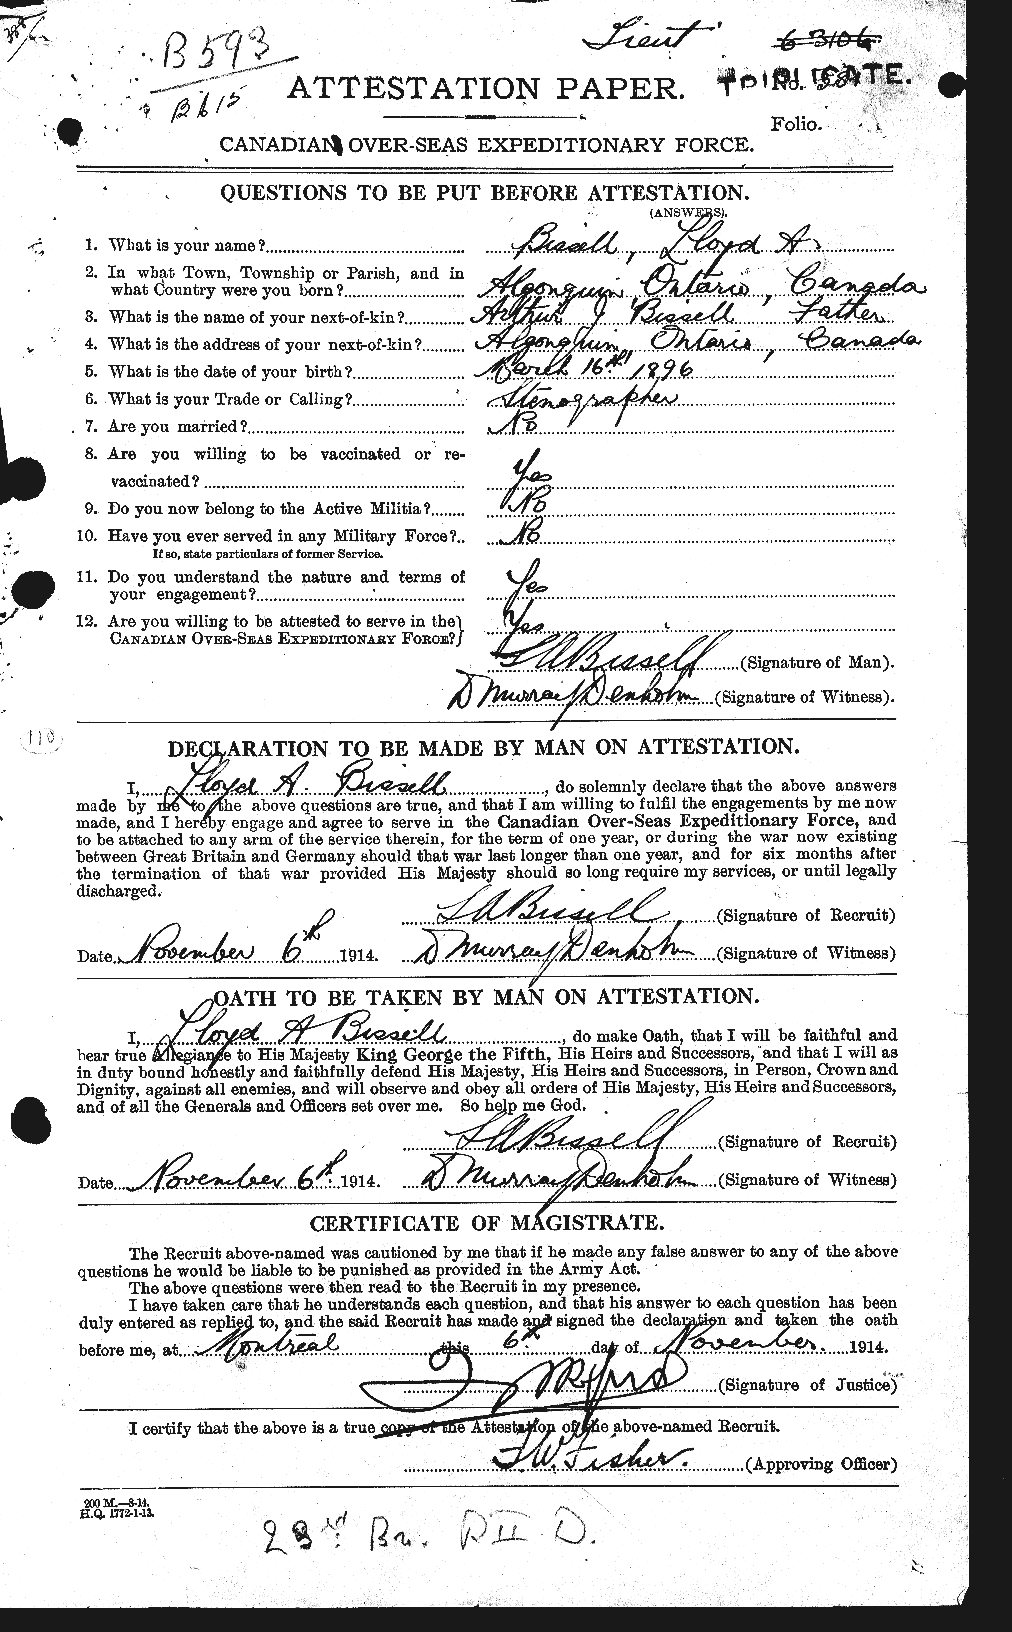 B593
B615
Lieut
63106
ATTESTATION PAPER.
No.
Folio.
CANADIAN OVER-SEAS EXPEDITIONARY FORCE.
QUESTIONS TO BE PUT BEFORE ATTESTATION.
(ANSWERS).
1. What is your name? Bissell, Lloyd A
2. In what Town, Township or Parish, and in
what Country were you born? Algonquin, Ontario, Canada
3. What is the name of your next-of-kin? Arthur J Bissell Father
4. What is the address of your next-of-kin? Algonquin, Ontario, Canada
5. What is the date of your birth? March 16th 1896
6. What is your Trade or Calling? Stenographer
7. Are you married? No
8. Are you willing to be vaccinated or re-
vaccinated? Yes
9. Do you now belong to the Active Militia? No
10. Have you ever served in any Military Force? No
If so, state particulars of former Service.
11. Do you understand the nature and terms of
your engagement? Yes
12. Are you willing to be attested to serve in the
CANADIAN OVER-SEAS EXPEDITIONARY FORCE? Yes
L A Bissell (Signature of Man).
D Murray Denholm (Signature of Witness).
110
DECLARATION TO BE MADE BY MAN ON ATTESTATION.
I, Lloyd A. Bissell, do solemnly declare that the above answers
made by me to the above questions are true, and that I am willing to fulfil the engagements by me now
made, and I hereby engage and agree to serve in the Canadian Over-Seas Expeditionary Force, and
to be attached to any arm of the service therein, for the term of one year, or during the war now existing
between Great Britain and Germany should that war last longer than one year, and for six months after
the termination of that war provided His Majesty should so long require my services, or until legally
discharged.
L A Bissell (Signature of Recruit)
Date November 6th 1914. D Murray Denholm (Signature of Witness)
OATH TO BE TAKEN BY MAN ON ATTESTATION.
I, Lloyd A Bissell, do make Oath, that I will be faithful and
bear true Allegiance to His Majesty King George the Fifth, His Heirs and Successors, and that I will as
in duty bound honestly and faithfully defend His Majesty, His Heirs and Successors, in Person, Crown and
Dignity, against all enemies, and will observe and obey all orders of His Majesty, His Heirs and Successors,
and of all the Generals and Officers set over me. So help me God.
L A Bissell (Signature of Recruit)
Date November 6th 1914. D Murray Denholm (Signature of Witness)
CERTIFICATE OF MAGISTRATE.
The Recruit above-named was cautioned by me that if he made any false answer to any of the above
questions he would be liable to be punished as provided in the Army Act.
The above questions were then read to the Recruit in my presence.
I have taken care that he understands each question, and that his answer to each question has been
duly entered as replied to, and the said Recruit has made and signed the declaration and taken the oath
before me, at Montreal this 6th day of November. 1914.
(Signature of Justice)
I certify that the above is a true copy of the Attestation of the above-named Recruit.
F.W. Fisher. (Approving Officer)
200 M.—8-14.
H.Q. 1772-1-13.
23rd Bn. P II D.